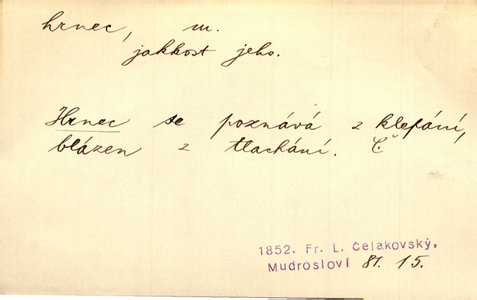 hrnec, m.
jakkost jeho.
Hrnec se poznává z klepání,
blázen z tlachání. Č
1852. Fr. L. Čelakovský,
Mudrosloví 81. 15.